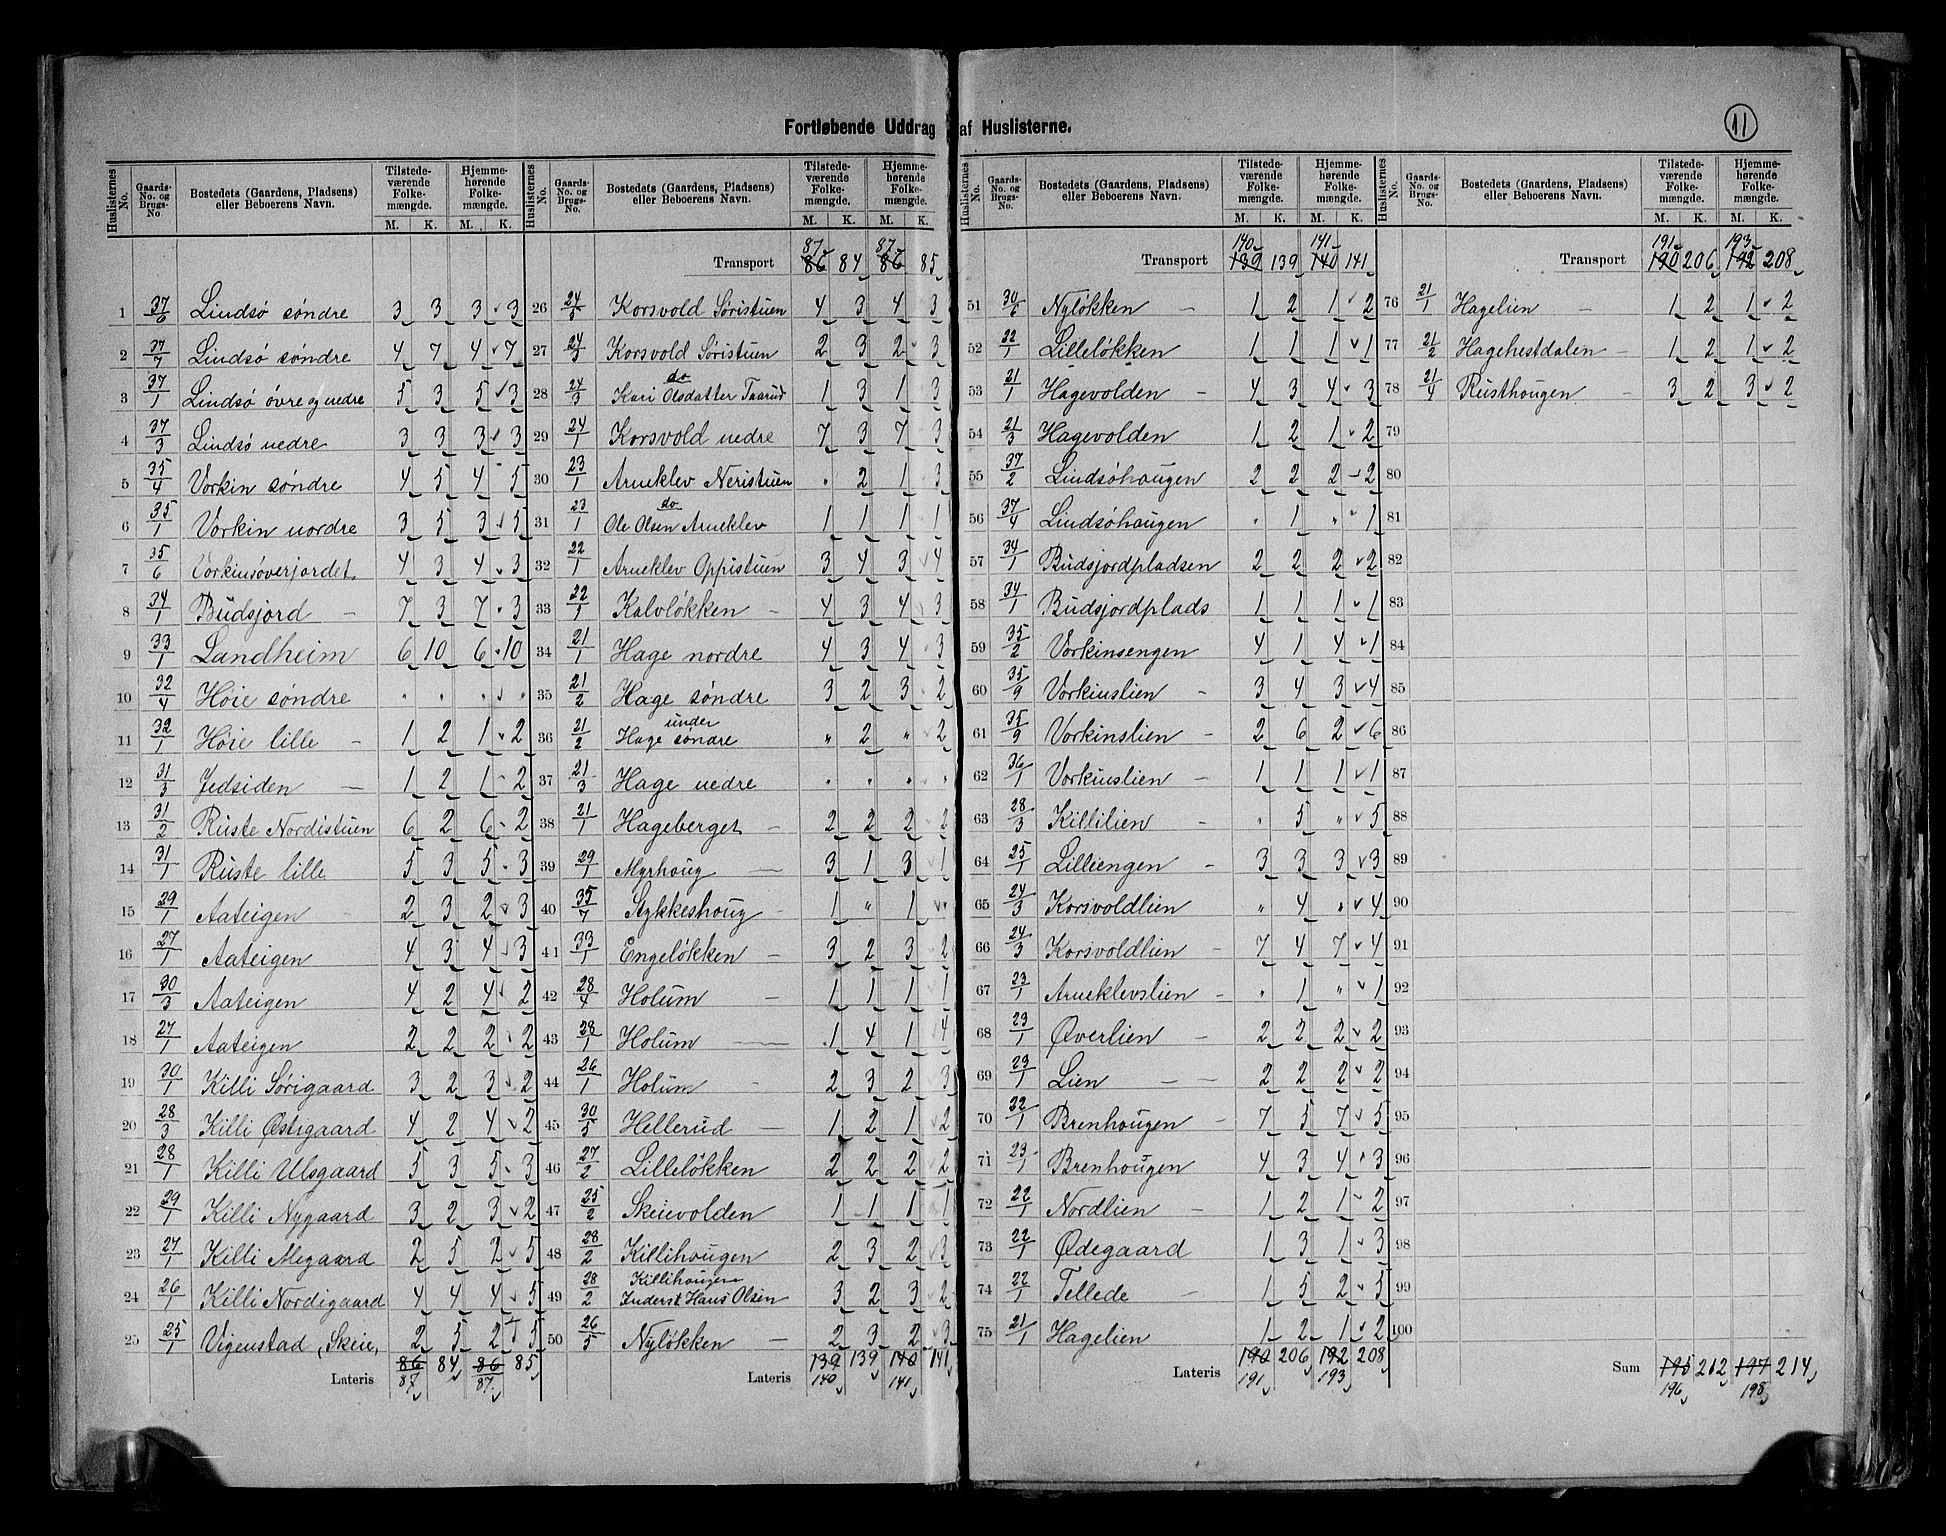 Fortløbende Uddrag af Huslisterne.
11
Huslisternes No. | Gaards-No. og Brugs-No | Bostedets (Gaardens, Pladsens) eller Beboerens Navn. | Tilstedeværende Folkemængde. M. K. | Hjemmehørende Folkemængde. M. K.
1 37/6 Lindsø søndre 3 3 3 3
2 37/7 Lindsø søndre 4 7 4 7
3 37/1 Lindsø øvre og nedre 5 3 5 3
4 37/3 Lindsø nedre 3 3 3 3
5 35/4 Vorkin søndre 4 5 4 5
6 35/1 Vorkin nordre 3 5 3 5
7 35/6 Vorkinsøverjordet 4 3 4 3
8 34/1 Budsjord – 7 3 7 3
9 33/1 Landheim 6 10 6 10
10 32/4 Høie søndre . . . .
11 32/1 Høie lille – 1 2 1 2
12 31/3 Jedsiden – 1 2 1 2
13 31/2 Ruste Nordistuen 6 2 6 2
14 31/1 Ruste lille 5 3 5 3
15 29/1 Aateigen 2 3 2 3
16 27/1 Aateigen 4 3 4 3
17 30/3 Aateigen 4 2 4 2
18 27/1 Aateigen 2 2 2 2
19 30/1 Killi Sørigaard 3 2 3 2
20 28/3 Killi Østigaard 4 2 4 2
21 28/1 Killi Ulsgaard 5 3 5 3
22 29/1 Killi Nygaard 3 2 3 2
23 27/1 Killi Megaard 2 5 2 5
24 26/1 Killi Nordigaard 4 4 4 5
25 25/1 Vigenstad, Skeie, 2 5 2 5
Lateris 86 84 86 85
87 87
Huslisternes No. | Gaards-No. og Brugs-No. | Bostedets (Gaardens, Pladsens) eller Beboerens Navn. | Tilstedeværende Folkemængde. M. K. | Hjemmehørende Folkemængde. M. K.
87 87
Transport 86 84 86 85
26 24/5 Korsvold Søristuen 4 3 4 3
27 24/3 Korsvold Søristuen 2 3 2 3
do
28 24/3 Kari Olsdatter Taarud 1 3 1 3
29 24/1 Korsvold nedre 7 3 7 3
30 23/1 Arneklev Neristuen . 2 1 3
do
31 23/1 Ole Olsen Arneklev 1 1 1 1
32 22/1 Arneklev Oppistuen 3 4 3 4
33 22/1 Kalvløkken – 4 3 4 3
34 21/1 Hage nordre 4 3 4 3
35 21/2 Hage søndre 3 2 3 2
under
36 21/2 Hage søndre " 2 " 2
37 21/3 Hage nedre . . . .
38 21/1 Hageberget – 2 2 2 2
39 29/1 Myrhoug – 3 1 3 1
40 35/7 Stykkeshoug – 1 " 1 "
41 33/1 Engeløkken – 3 2 3 2
42 28/4 Holum – 1 1 1 1
43 28/1 Holum – 1 4 1 4
44 26/1 Holum – 2 3 2 3
45 30/5 Hellerud – 1 2 1 2
46 27/2 Lilleløkken 2 2 2 2
47 25/2 Skeievolden 1 1 1 1
48 28/2 Killihougen 2 3 2 3
Killihougen
49 28/2 Inderst Hans Olsen 3 2 3 2
50 26/5 Nyløkken – 2 3 2 3
Lateris 139 139 140 141
140 141
Huslisternes No. | Gaards-No. og Brugs-No. | Bostedets (Gaardens, Pladsens) eller Beboerens Navn. | Tilstedeværende Folkemængde. M. K. | Hjemmehørende Folkemængde. M. K.
140 141
Transport 139 139 140 141
51 30/6 Nyløkken – 1 2 1 2
52 32/1 Lilleløkken 1 1 1 1
53 21/1 Hagevolden – 4 3 4 3
54 21/3 Hagevolden 1 2 1 2
55 37/2 Lindsøhaugen 2 2 2 2
56 37/4 Lindsøhaugen " 1 " 1
57 34/1 Budsjordpladsen 2 2 2 2
58 34/1 Budsjordplads 1 1 1 1
59 35/2 Vorkinsengen 4 1 4 1
60 35/9 Vorkinslien – 3 4 3 4
61 35/9 Vorkinslien – 2 6 2 6
62 36/1 Vorkinslien – 1 1 1 1
63 28/3 Killilien – " 5 " 5
64 25/1 Lilleengen – 3 3 3 3
65 24/3 Korsvoldlien " 4 " 4
66 24/3 Korsvoldlien – 7 4 7 4
67 23/1 Arneklevslien – " 1 " 1
68 23/1 Øverlien – 2 2 2 2
69 23/1 Lien – – 2 2 2 2
70 32/1 Brenhougen – 7 5 7 5
71 23/1 Brenhougen 4 3 4 3
72 22/1 Nordlien – 1 2 1 2
73 22/1 Ødegaard 1 3 1 3
74 22/1 Tellede – 1 5 2 5
75 21/1 Hagelien 1 2 1 2
Lateris 190 206 192 208
191 193
Huslisternes No. | Gaards-No. og Brugs-No. | Bostedets (Gaardens, Pladsens) eller Beboerens Navn. | Tilstedeværende Folkemængde. M. K. | Hjemmehørende Folkemængde. M. K.
191 193
Transport 190 206 192 208
76 21/1 Hagelien – 1 2 1 2
77 21/2 Hagehestdalen – 1 2 1 2
78 21/4 Rusthougen – 3 2 3 2
79
80
81
82
83
84
85
86
87
88
89
90
91
92
93
94
95
96
97
98
99
100
Sum 195 212 197 214
196 198